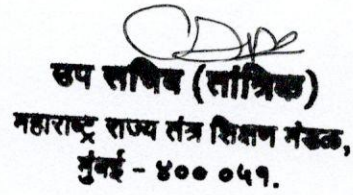 उप सचिव (तांत्रिक)
महाराष्ट्र राज्य तंत्र शिक्षण मंडळ,
मुंबई - ४०० ०५१.